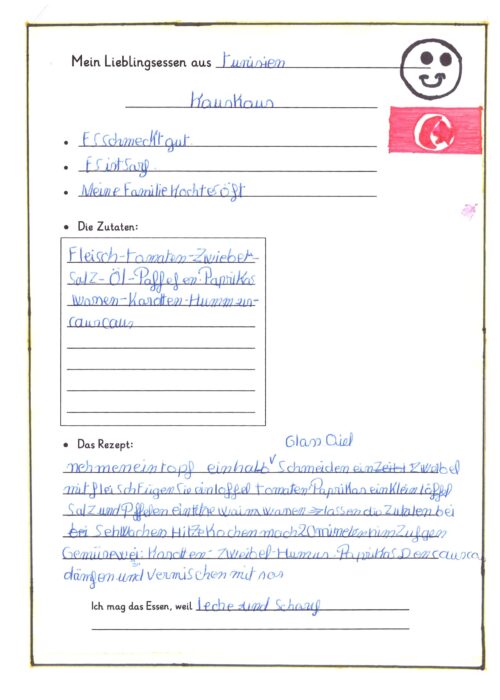 Mein Lieblingsessen aus Tunisien
Kauskaus
• Es schmeckt gut.
• Es ist Sarf
• Meine Familie kocht es öft
• Die Zutaten:
Fleisch-tomaten-Zwiebel-
Salz-Öl-Paffefen-Paprikas
wamen-Karotten-Hummus-
causcaus
• Das Rezept:
Glass Oiel
nehmen ein topf einhalb Schneiden ein Zwiebel
mit fleisch fügen Sie ein löffel tomaten Paprikas ein klein löffel
Salz und Pfeffen lassen die Zutaten bei
Sehwachen Hitze Kochen nach 20 hinzufgen
Gemüse wei: Karotten-Zwiebel-Humus-Paprikas
dämfen und vermischen mit sos
Ich mag das Essen, weil leche und Scharf